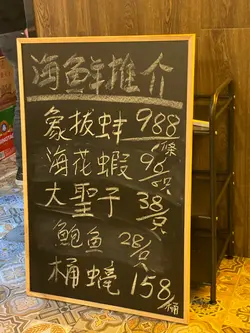 海鮮推介
象拔蚌 988/條
海花蝦 96/只
大聖子 38/只
鮑魚 28/只
桶蟶 158/桶